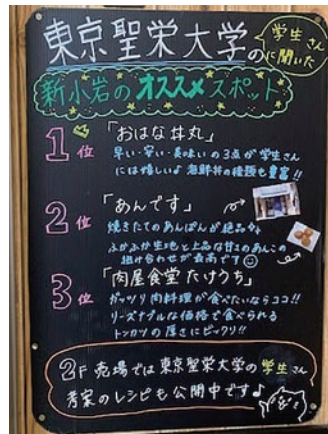 東京聖栄大学の学生さんに聞いた
新小岩のオススメスポット
1位 「おはな丼丸」
早い・安い・美味いの3点が学生さん
には嬉しい♪ 海鮮丼の種類も豊富!!
2位 「あんです」
焼きたてのあんぱんが絶品☆
ふかふか生地と上品な甘さのあんこの
掛け合わせが最高です☺
3位 「肉屋食堂 たけうち」
ガッツリ肉料理が食べたいならココ!!
リーズナブルな価格で食べられる
トンカツの厚さにビックリ!!
2F 売場では東京聖栄大学の学生さん
考案のレシピも公開中です♪